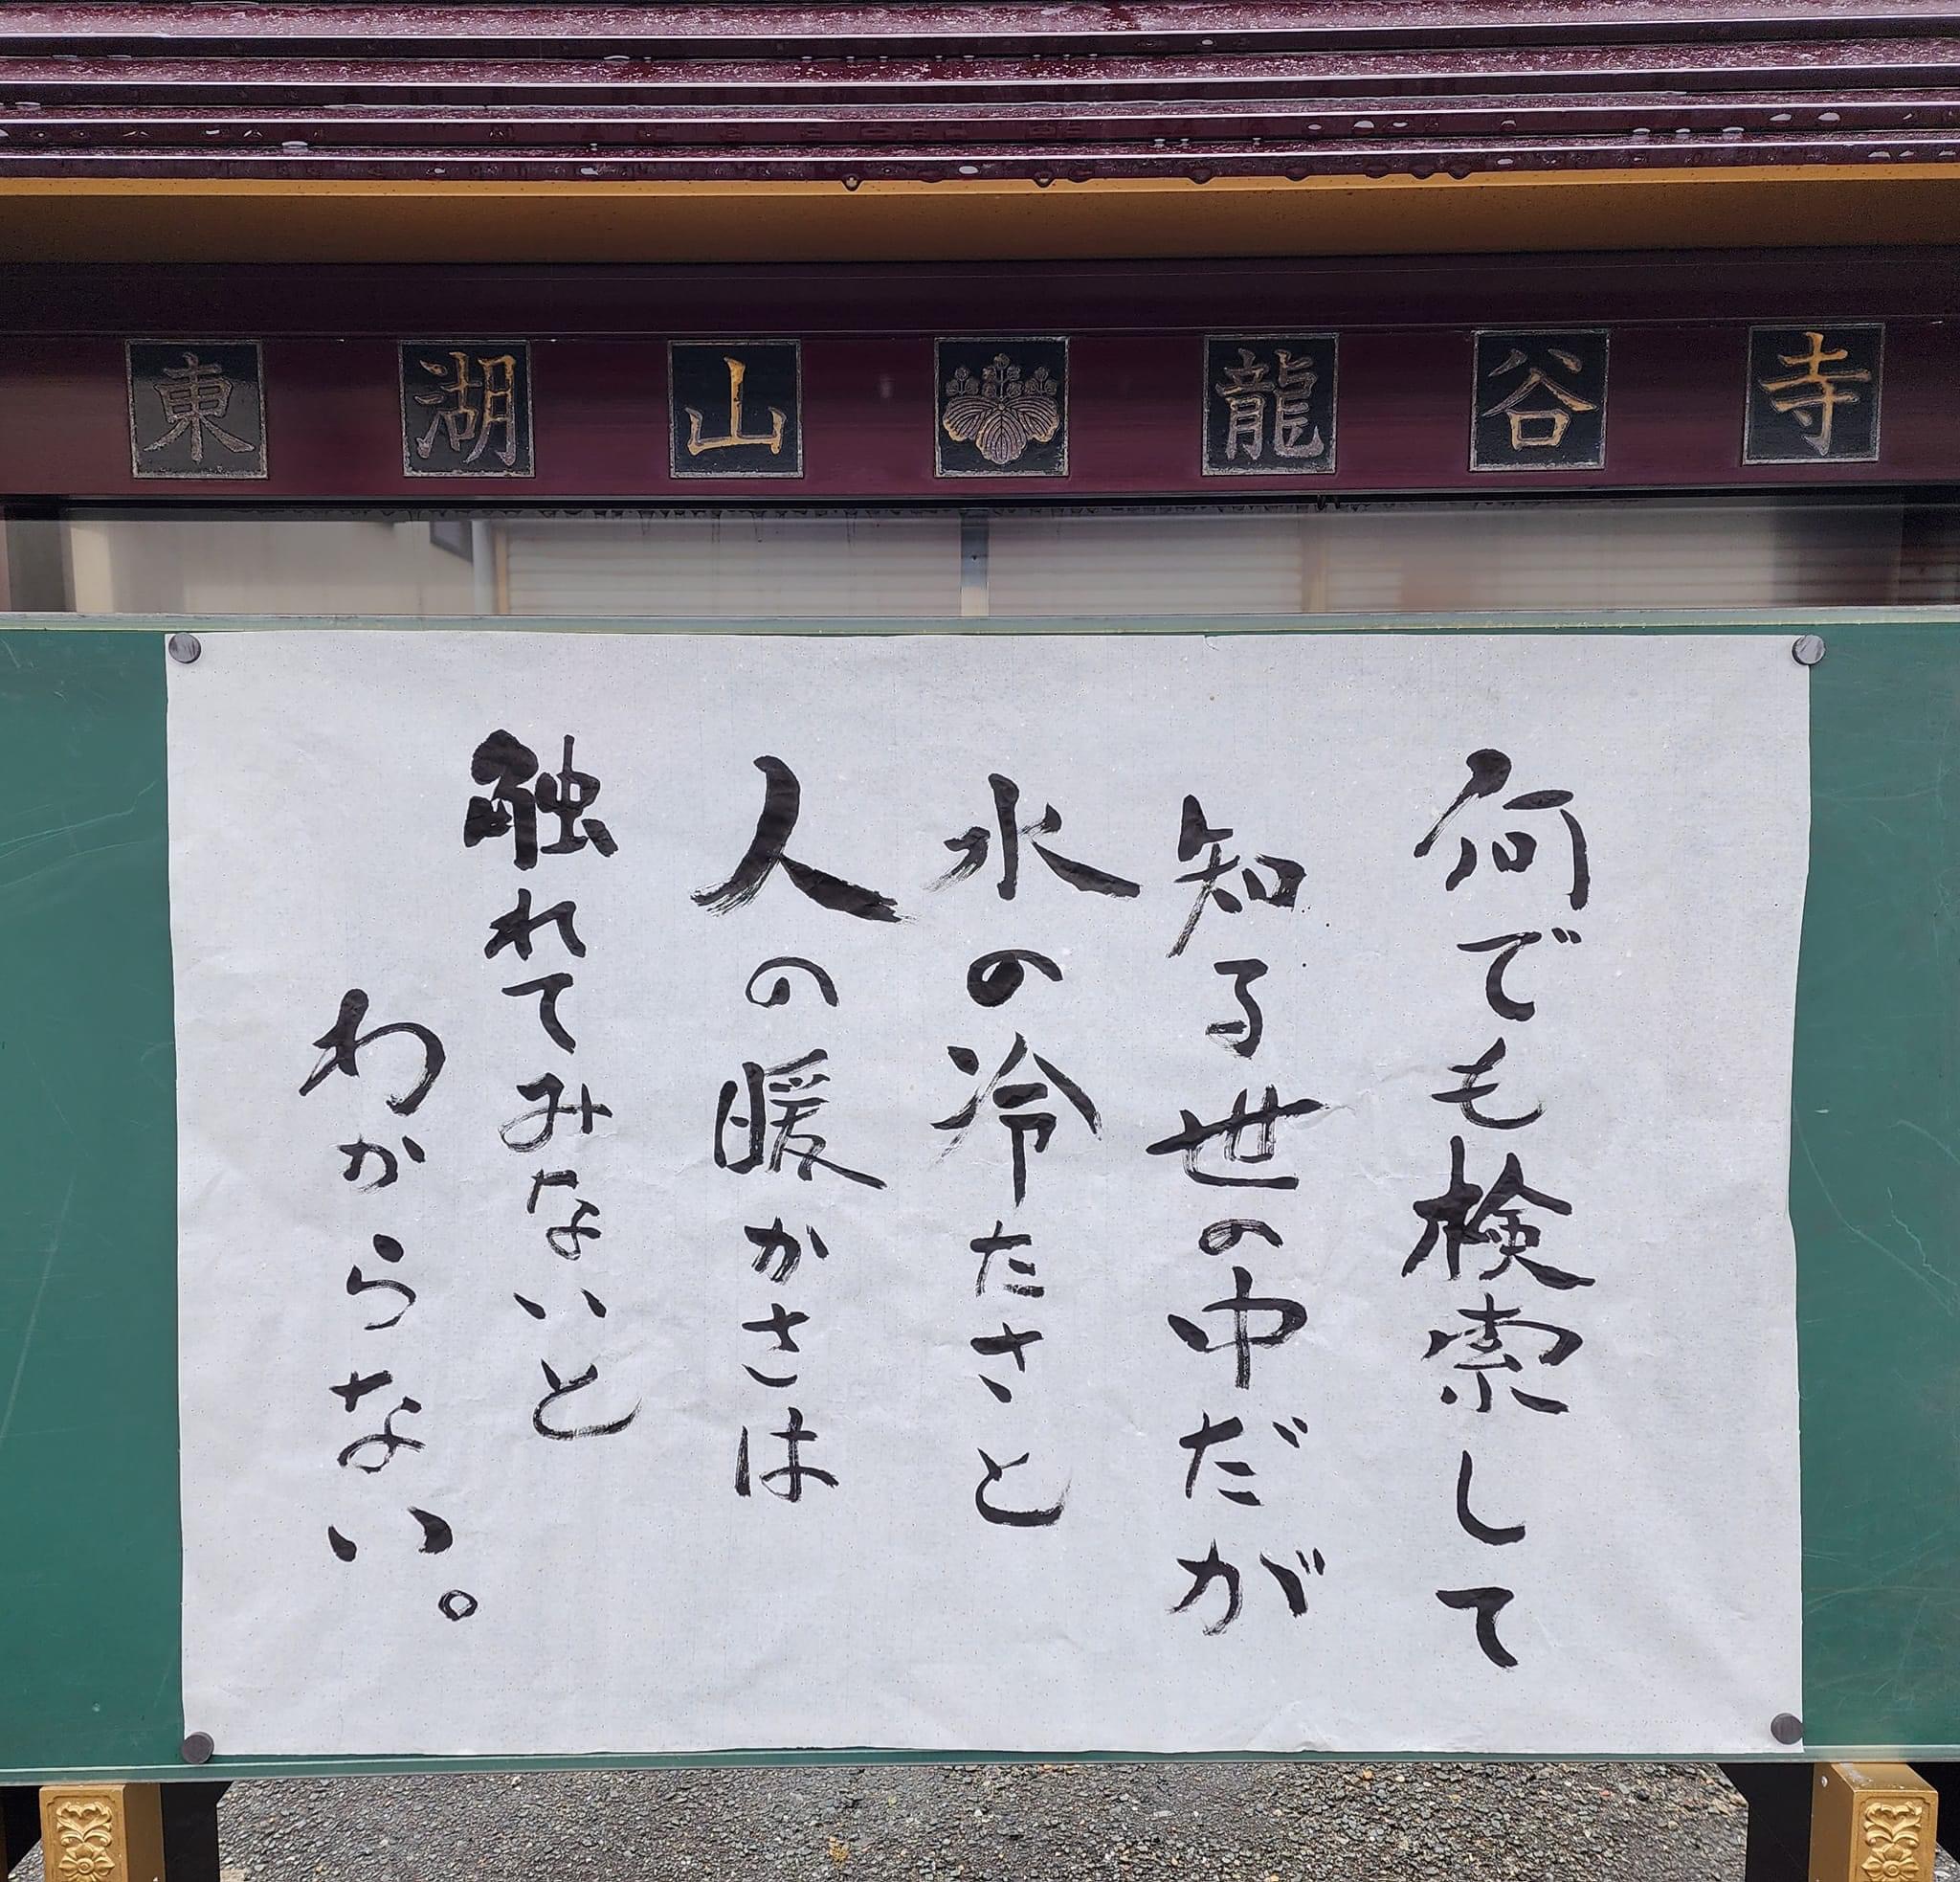 東湖山 龍谷寺
何でも検索して
知る世の中だが
水の冷たさと
人の暖かさは
触れてみないと
わからない。